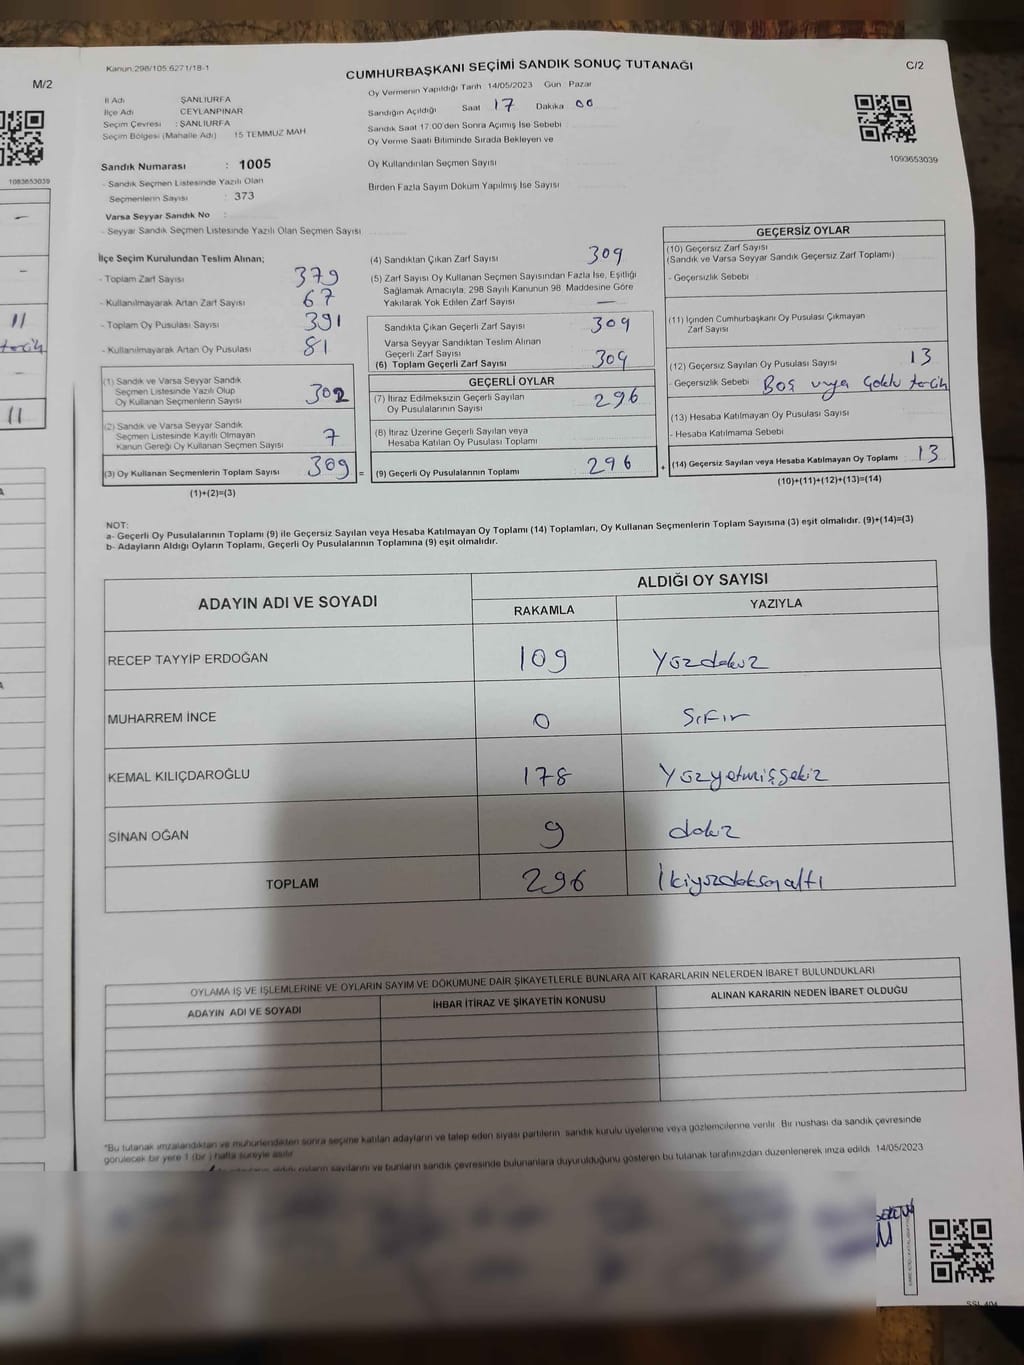 M/2
1093653039
11
tercih
11
Kanun:298/105 6271/18-1
CUMHURBAŞKANI SEÇİMİ SANDIK SONUÇ TUTANAĞI
C/2
1093653039
İl Adı ŞANLIURFA
İlçe Adı CEYLANPINAR
Seçim Çevresi : ŞANLIURFA
Seçim Bölgesi (Mahalle Adı) 15 TEMMUZ MAH
Oy Vermenin Yapıldığı Tarih 14/05/2023 Gün Pazar
Sandığın Açıldığı Saat 17 Dakika 00
Sandık Saat 17:00'den Sonra Açımış İse Sebebi
Oy Verme Saati Bitiminde Sırada Bekleyen ve
Oy Kullandırılan Seçmen Sayısı
Birden Fazla Sayım Döküm Yapılmış İse Sayısı
Sandık Numarası : 1005
- Sandık Seçmen Listesinde Yazılı Olan
Seçmenlerin Sayısı : 373
Varsa Seyyar Sandık No :
- Seyyar Sandık Seçmen Listesinde Yazılı Olan Seçmen Sayısı
İlçe Seçim Kurulundan Teslim Alınan;
- Toplam Zarf Sayısı 379
- Kullanılmayarak Artan Zarf Sayısı 67
- Toplam Oy Pusulası Sayısı 391
- Kullanılmayarak Artan Oy Pusulası 81
(1) Sandık ve Varsa Seyyar Sandık
Seçmen Listesinde Yazılı Olup
Oy Kullanan Seçmenlerin Sayısı 302
(2) Sandık ve Varsa Seyyar Sandık
Seçmen Listesinde Kayıtlı Olmayan
Kanun Gereği Oy Kullanan Seçmen Sayısı 7
(3) Oy Kullanan Seçmenlerin Toplam Sayısı 309 =
(1)+(2)=(3)
(4) Sandıktan Çıkan Zarf Sayısı 309
(5) Zarf Sayısı Oy Kullanan Seçmen Sayısından Fazla İse, Eşitliği
Sağlamak Amacıyla, 298 Sayılı Kanunun 98. Maddesine Göre
Yakılarak Yok Edilen Zarf Sayısı —
Sandıkta Çıkan Geçerli Zarf Sayısı 309
Varsa Seyyar Sandıktan Teslim Alınan
Geçerli Zarf Sayısı
(6) Toplam Geçerli Zarf Sayısı 309
GEÇERLİ OYLAR
(7) İtiraz Edilmeksizin Geçerli Sayılan
Oy Pusulalarının Sayısı 296
(8) İtiraz Üzerine Geçerli Sayılan veya
Hesaba Katılan Oy Pusulası Toplamı
(9) Geçerli Oy Pusulalarının Toplamı 296 +
GEÇERSİZ OYLAR
(10) Geçersiz Zarf Sayısı
(Sandık ve Varsa Seyyar Sandık Geçersiz Zarf Toplamı)
- Geçersizlik Sebebi
(11) İçinden Cumhurbaşkanı Oy Pusulası Çıkmayan
Zarf Sayısı
(12) Geçersiz Sayılan Oy Pusulası Sayısı 13
- Geçersizlik Sebebi Boş veya Çoklu tercih
(13) Hesaba Katılmayan Oy Pusulası Sayısı
- Hesaba Katılmama Sebebi
(14) Geçersiz Sayılan veya Hesaba Katılmayan Oy Toplamı 13
(10)+(11)+(12)+(13)=(14)
NOT:
a- Geçerli Oy Pusulalarının Toplamı (9) ile Geçersiz Sayılan veya Hesaba Katılmayan Oy Toplamı (14) Toplamları, Oy Kullanan Seçmenlerin Toplam Sayısına (3) eşit olmalıdır. (9)+(14)=(3)
b- Adayların Aldığı Oyların Toplamı, Geçerli Oy Pusulalarının Toplamına (9) eşit olmalıdır.
ADAYIN ADI VE SOYADI
ALDIĞI OY SAYISI
RAKAMLA YAZIYLA
RECEP TAYYİP ERDOĞAN 109 Yüzdokuz
MUHARREM İNCE 0 Sıfır
KEMAL KILIÇDAROĞLU 178 Yüzyetmişsekiz
SİNAN OĞAN 9 dokuz
TOPLAM 296 İkiyüzdoksanaltı
OYLAMA İŞ VE İŞLEMLERİNE VE OYLARIN SAYIM VE DÖKÜMÜNE DAİR ŞİKAYETLERLE BUNLARA AİT KARARLARIN NELERDEN İBARET BULUNDUKLARI
ADAYIN ADI VE SOYADI
İHBAR İTİRAZ VE ŞİKAYETİN KONUSU
ALINAN KARARIN NEDEN İBARET OLDUĞU
*Bu tutanak imzalandıktan ve mühürlendikten sonra seçime katılan adayların ve talep eden siyasi partilerin sandık kurulu üyelerine veya gözlemcilerine verilir. Bir nüshası da sandık çevresinde
görülecek bir yere 1 (bir) hafta süreyle asılır.
oyların sayılarını ve bunların sandık çevresinde bulunanlara duyurulduğunu gösteren bu tutanak tarafımızdan düzenlenerek imza edildi. 14/05/2023
SSL 404